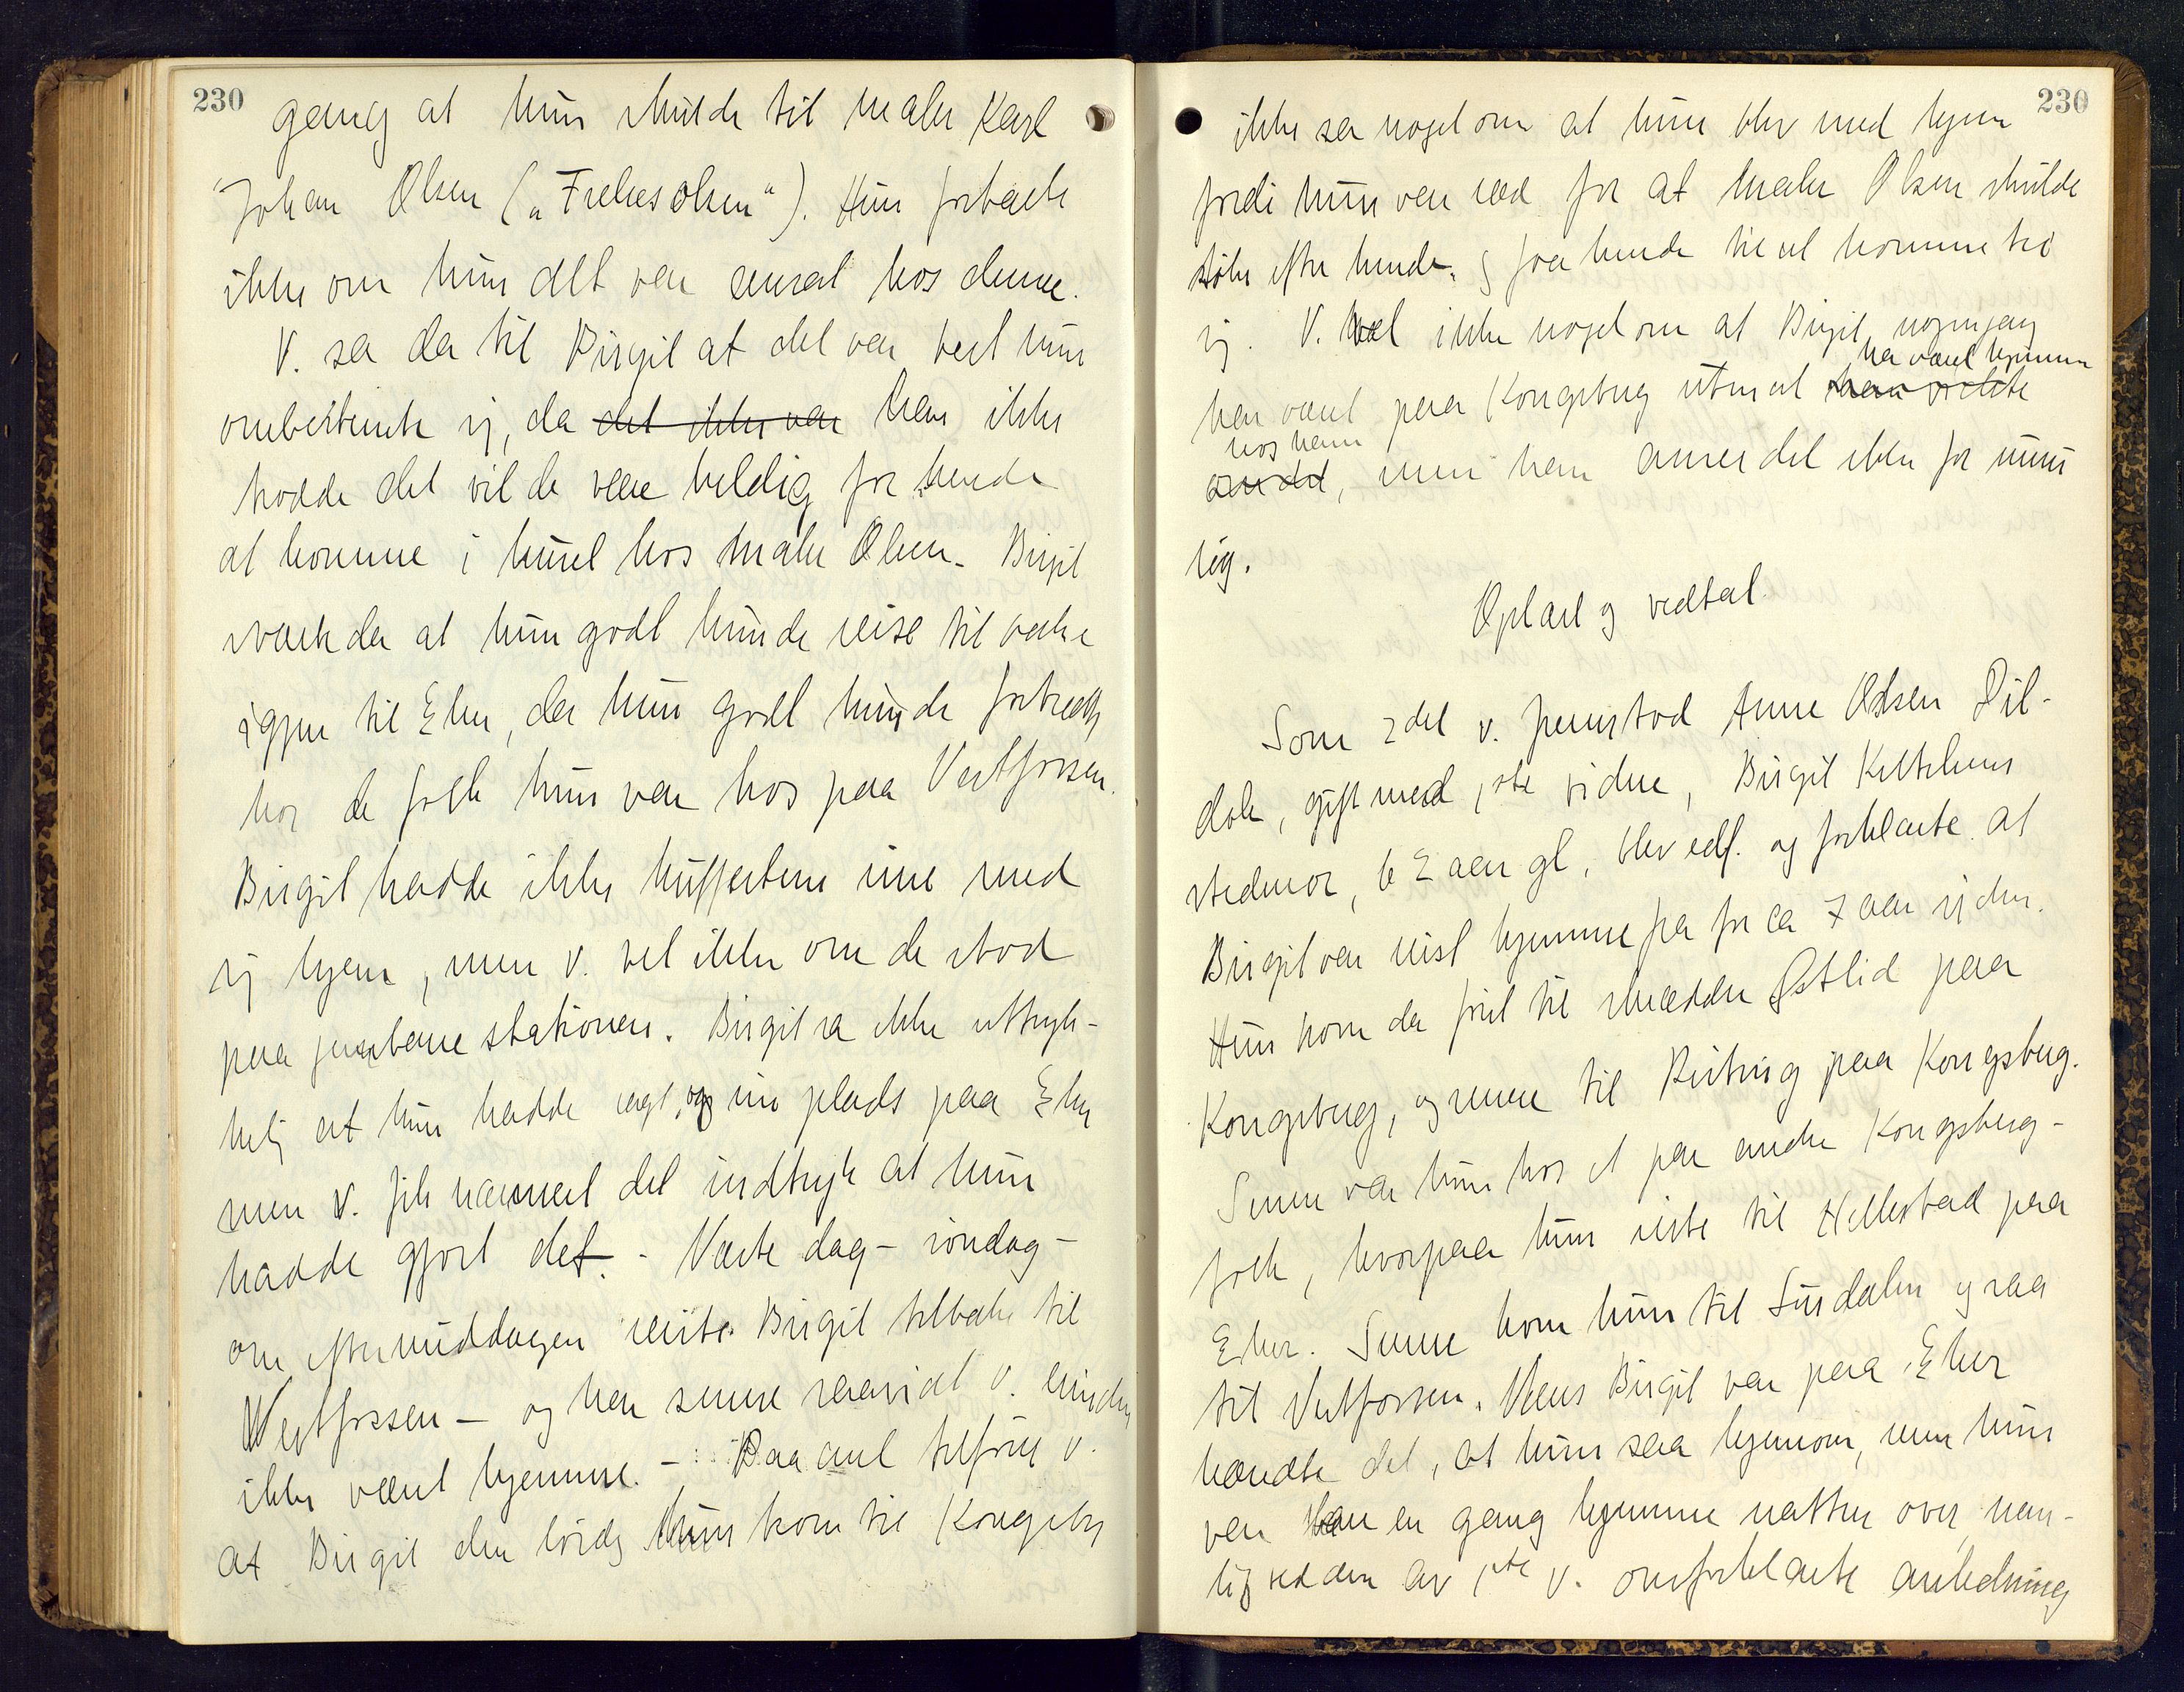 230
gang at hun skulde til maler Karl
Johan Olsen („Frelsesolsen“). Hun fortalte
ikke om hun alt var ansat hos denne.
V. sa da til Birgit at det var best hun
ombestemte sig, da det ikke var han ikke
trodde det vilde være heldig for hende
at komme i huset hos maler Olsen. Birgit
svarte da at hun godt kunde reise tilbake
igjen til Eker, da hun godt kunde fortsætte
hos de folk hun var hos paa Vestfossen.
Birgit hadde ikke kufferten sine med
sig hjem, men v. vet ikke om de stod
paa jernbanestationen. Birgit sa ikke uttryk-
kelig at hun hadde sagt op sin plads paa Eker
men v. fik nærmest det indtryk at hun
hadde gjort det. - Næste dag - søndag -
om eftermiddagen reiste Birgit tilbake til
Vestfossen - og har senere saavidt v. erindrer
ikke vært hjemme. - Paa anl tilføier v.
at Birgit den lørdag hun kom til Kongsberg
230
ikke sa noget om at hun blev med hjem
fordi hun var ræd for at maler Olsen skulde
søke efter hende og faa hende til at komme til
sig. V. vet ikke noget om at Birgit nogengang
har været hjemme
har været paa Kongsberg uten at han vidste
hos ham
om det, men han anser det ikke for umu
lig.
Oplæst og vedtat.
Som 2det v. fremstod Anne Olsen Dil-
dole, gift med 1ste vidne, Birgit Kittelsens
stedmor, 62 aar gl, blev edf. og forklarte at
Birgit var reist hjemme fra for ca 7 aar siden.
Hun kom da først til skrædder Østlid paa
Kongsberg, og senere til paa Kongsberg.
Senere var hun hos et par andre Kongsberg-
folk, hvorpaa hun reiste til Hellestad paa
Eker. Senere kom hun til Surdalen og saa
til Vestfossen. Mens Birgit var paa Eker
hændte det, at hun saa hjemom, men hun
var kun en gang hjemme natten over, nem-
lig ved den av 1ste v. omforklarte anledning